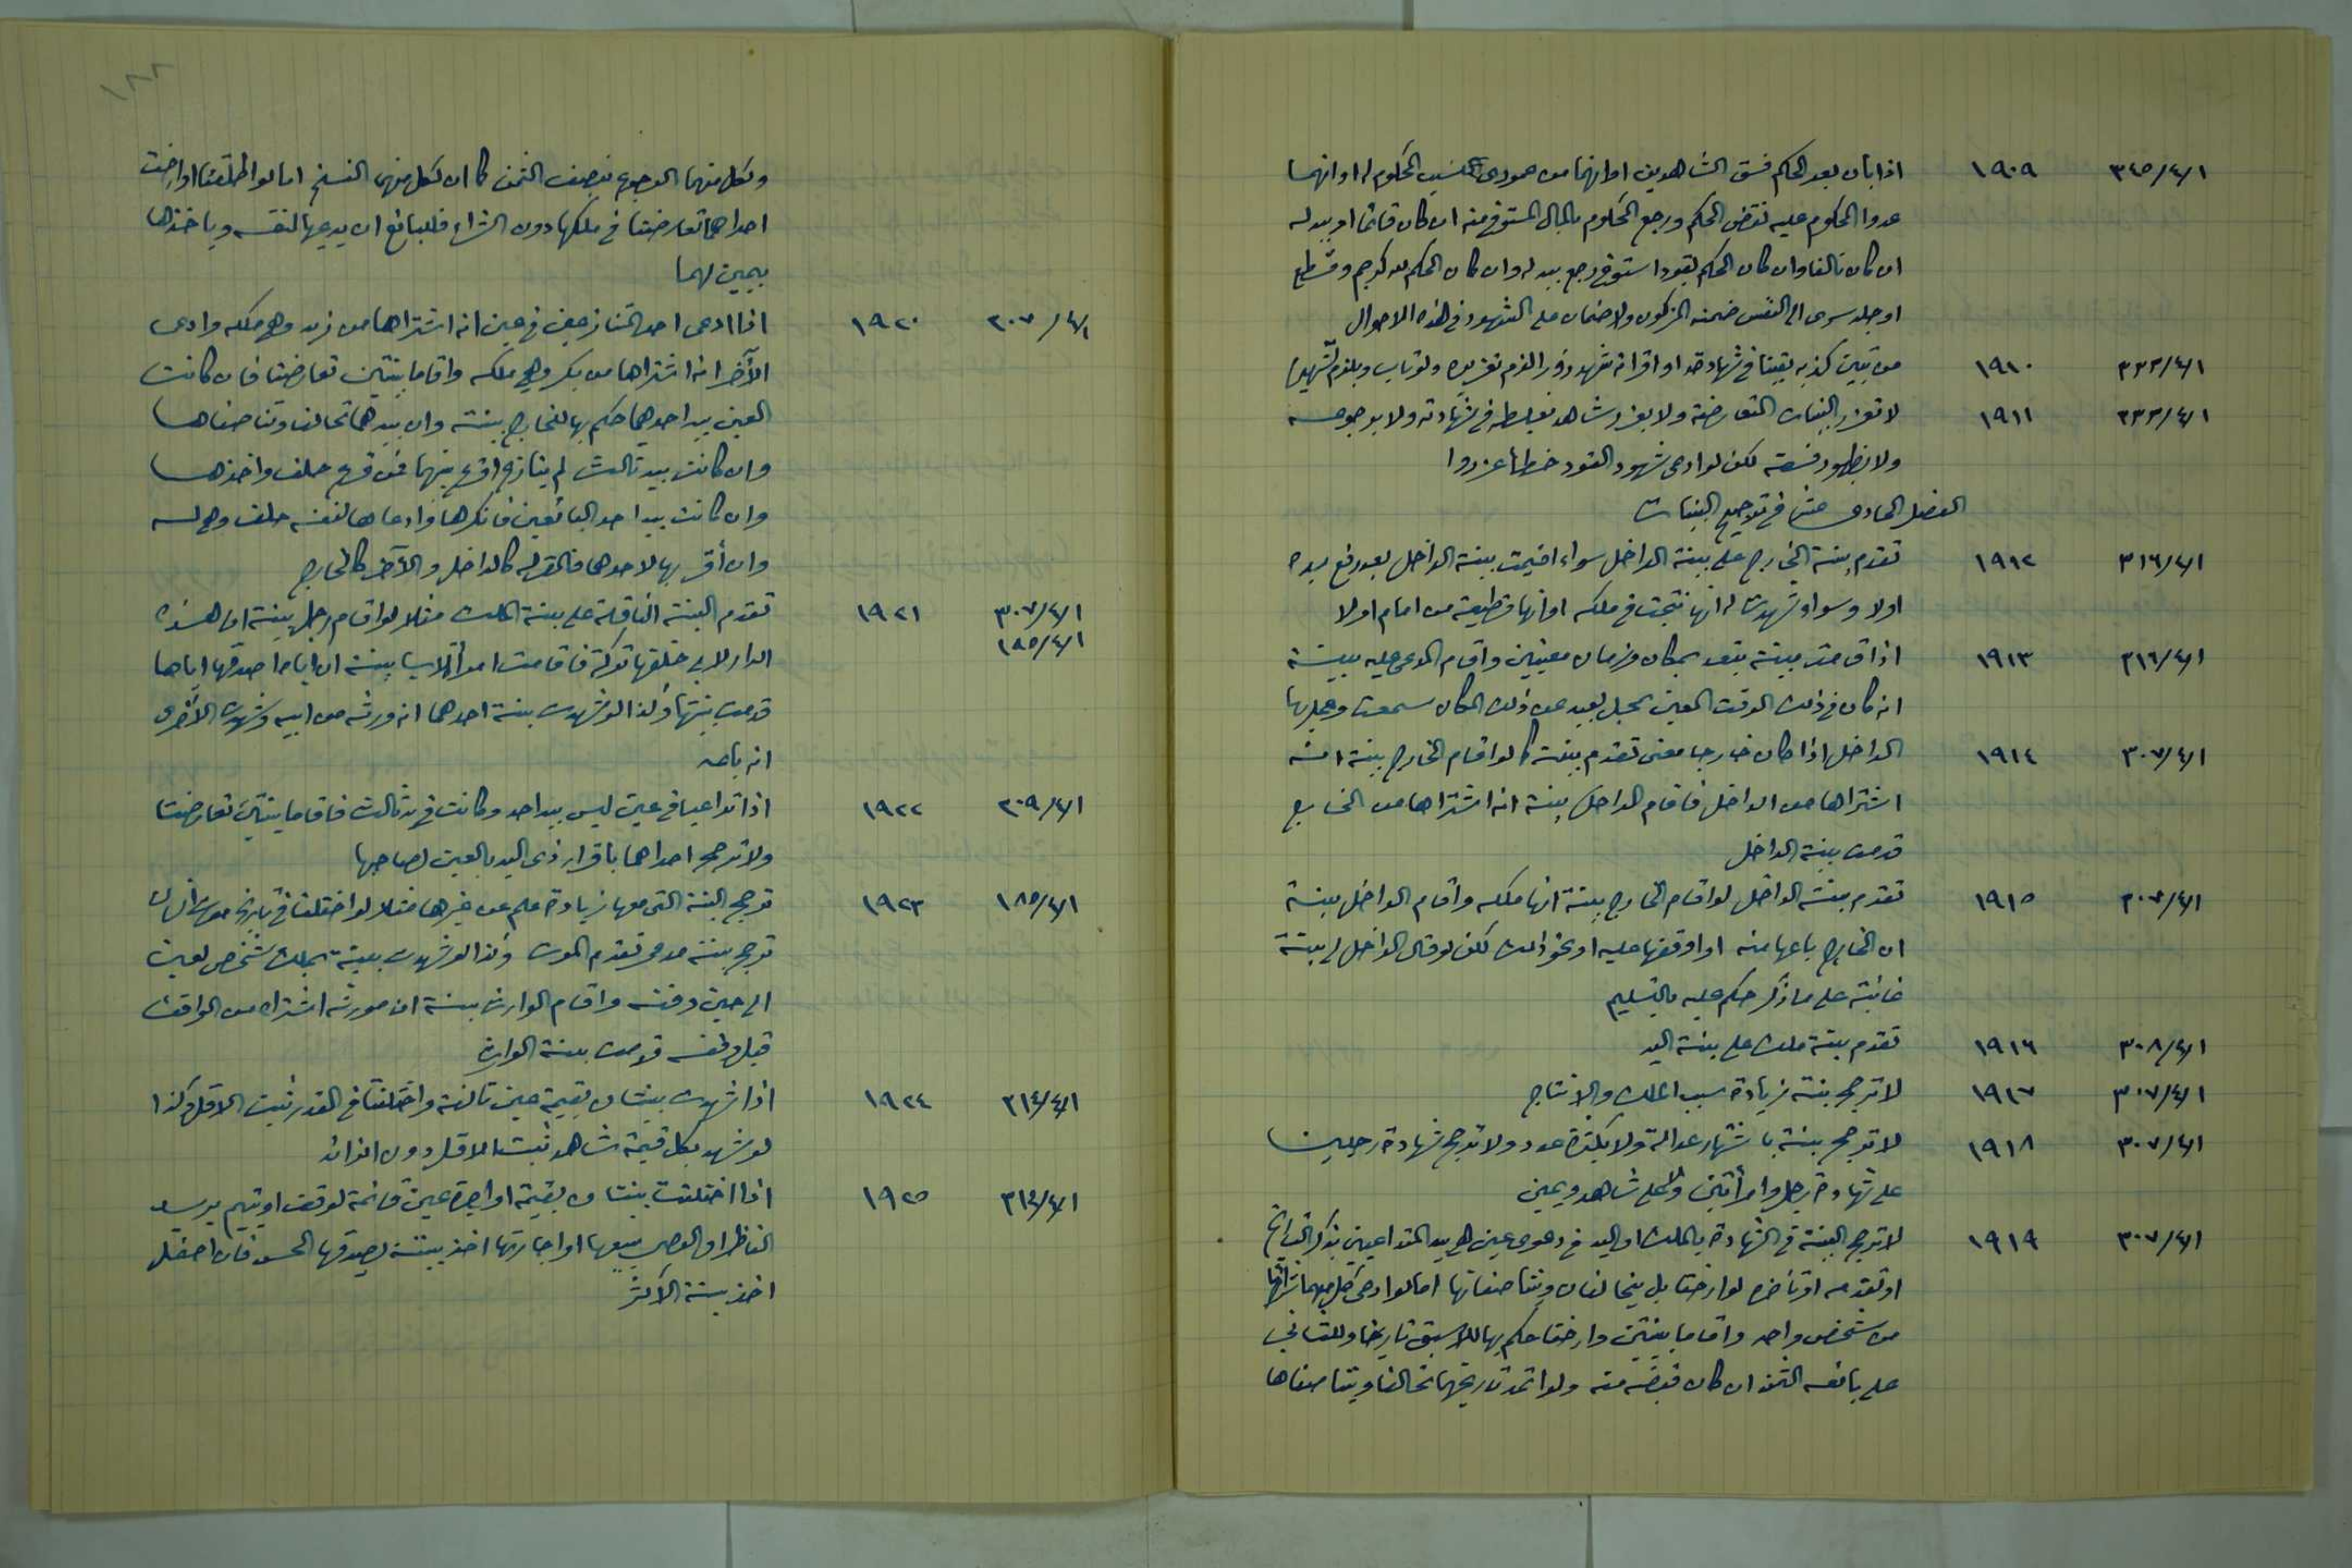 ٣٤٥/٤/١ ١٩٠٩ اذا بان بعد الحكم فسق الشاهدين او انهما من عمودى نسب المحكوم له او انهما
عدوا المحكوم عليه نقض الحكم ورجع المحكوم بالمال المستوفى منه ان كان قائما او ببدله
ان كان تالفا وان كان الحكم بقود استوفى رجع ببدله وان كان الحكم لله كرجم وقطع
او جلد سرى الى النفس ضمنه المزكون ولا ضمان على الشهود في هذه الاحوال
٣٣٢/٤/١ ١٩١٠ من تبين كذبه يقينا في شهادته او اقر انه شهد زور الزم تعزيره ولو تاب ويلزم تشهيره
٣٣٢/٤/١ ١٩١١ لا تعزر البينات المتعارضة ولا يعزر شاهد بغلطه في شهادته ولا برجوعه
ولا بظهور فسقه لكن لو ادعى شهود القود خطأ عزروا
الفصل الحادى عشر في ترجيح البينات
٣١٦/٤/١ ١٩١٢ تقدم بينة الخارج على بينة الداخل سواء اقيمت بينة الداخل بعد رفع يده
اولا وسواء شهدت له انها نتجت في ملكه او انها قطيعة من امام اولا
٣١٦/٤/١ ١٩١٣ اذا قامت بينة بقود بمكان وزمان معينين واقام المدعى عليه بينة
انه كان في ذلك الوقت المعين بمحل بعيد عن ذلك المكان سمعت وعمل بها
٣٠٧/٤/١ ١٩١٤ الداخل اذا كان خارجا معنى تقدم بينته كما لو اقام الخارج بينة انه
اشتراها من الداخل فاقام الداخل بينة انه اشتراها من الخارج
قدمت بينة الداخل
٣٠٧/٤/١ ١٩١٥ تقدم بينة الداخل لو اقام الخارج بينة انها ملكه واقام الداخل بينة
ان الخارج باعها منه او اوقفها عليه او نحو ذلك لكن لو قال الداخل لى بينة
غائبة على ما ذكر حكم عليه بالتسليم
٣٠٨/٤/١ ١٩١٦ تقدم بينة ملك على بينة اليد
٣٠٧/٤/١ ١٩١٧ لا ترجح بينة بزيادة سبب الملك والانتاج
٣٠٧/٤/١ ١٩١٨ لا ترجح بينة باشتهار عدالة ولا بكثرة عدد ولا ترجح شهادة رجلين
على شهادة رجل وامرأتين ولا على شاهد ويمين
٣٠٧/٤/١ ١٩١٩ لا ترجح البينة في الشهادة بالملك او اليد في دعوى عين هى بيد المتداعيين بذكر التاريخ
او تقدمه او تأخره لو ارختا بل يتحالفان ويتناصفانها اما لو ادعى كل منهما شراءها
من شخص واحد واقاما بينتين وارختا حكم بها للاسبق تاريخا وللثانى
على بائعه الثمن ان كان قبضه منه ولو اتحد تاريخهما تحالفا ويتناصفاها
١٨٢
ولكل منهما الرجوع بنصف الثمن كما ان لكل منهما الفسخ اما لو اطلقتا او ارخت
احداهما تعارضتا في ملكها دون الشراء فللبائع ان يدعيها لنفسه وياخذها
بيمين لهما
٣٠٧/٤/١ ١٩٢٠ اذا ادعى احد المتنازعين في عين انه اشتراها من زيد وهى ملكه وادعى
الآخر انه اشتراها من بكر وهى ملكه واقاما بينتين تعارضتا فان كانت
العين بيد احدهما حكم بها للخارج ببينته وان بيدهما تحالفا وتناصفاها
وان كانت بيد ثالث لم ينازع اقرع بينهما فمن قرع حلف واخذها
وان كانت بيد احد البائعين فانكرهما وادعاها لنفسه حلف وهى له
وان أقر بها لاحدهما فالمقر له كالداخل والآخر كالخارج
٣٠٧/٤/١ ١٩٢١ تقدم البينة الناقلة على بينة الملك مثلا لو اقام رجل بينة ان هذه
١٨٥/٤/١ الدار لابى خلفها تركة فاقامت امرأة الاب بينة ان اباه اصدقها اياها
قدمت بينتها وكذا لو شهدت بينة احدهما انه ورثه من ابيه وشهدت الاخرى
انه باعه
٣٠٩/٤/١ ١٩٢٢ اذا تداعيا في عين ليس بيد احد وكانت في يد ثالث فاقاما بينتين تعارضتا
ولا ترجح احداهما باقرار ذى اليد بالعين لصاحبها
١٨٥/٤/١ ١٩٢٣ ترجح البينة التى معها زيادة علم عن غيرها مثلا لو اختلفتا في تاريخ موت انسان
ترجح بينة مدعى تقدم الموت وكذا لو شهدت بينة بملك شخص لعين
الى حين وقفه واقام الوارث بينة ان مورثه اشتراه من الواقف
قبل وقفه قدمت بينة الوارث
٣١٤/٤/١ ١٩٢٤ اذا شهدت بينتان بقيمة عين تالفة واختلفتا في القدر ثبت الاقل وكذا
لو شهد بكل قيمة شاهد ثبت الاقل دون الزائد
٣١٤/٤/١ ١٩٢٥ اذا اختلفت بينتان بقيمة او اجرة عين قائمة لوقف او يتيم يريد
الناظر او الوصى بيعها او اجارتها اخذ ببينة يصدقها الحس فان احتمل
اخذ ببينة الاكثر